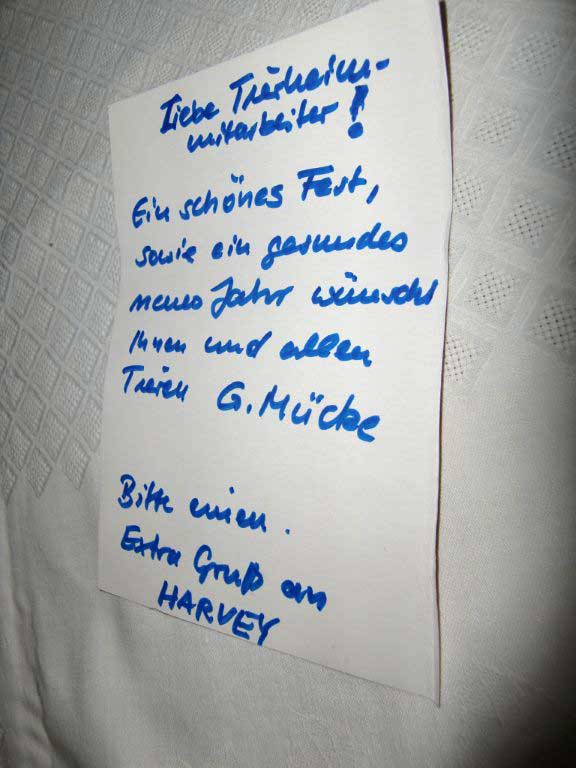 Liebe Tierheim-
mitarbeiter!
Ein schönes Fest,
sowie ein gesundes
neues Jahr wünscht
Ihnen und allen
Tieren G. Mücke
Bitte einen
Extra Gruß an
HARVEY